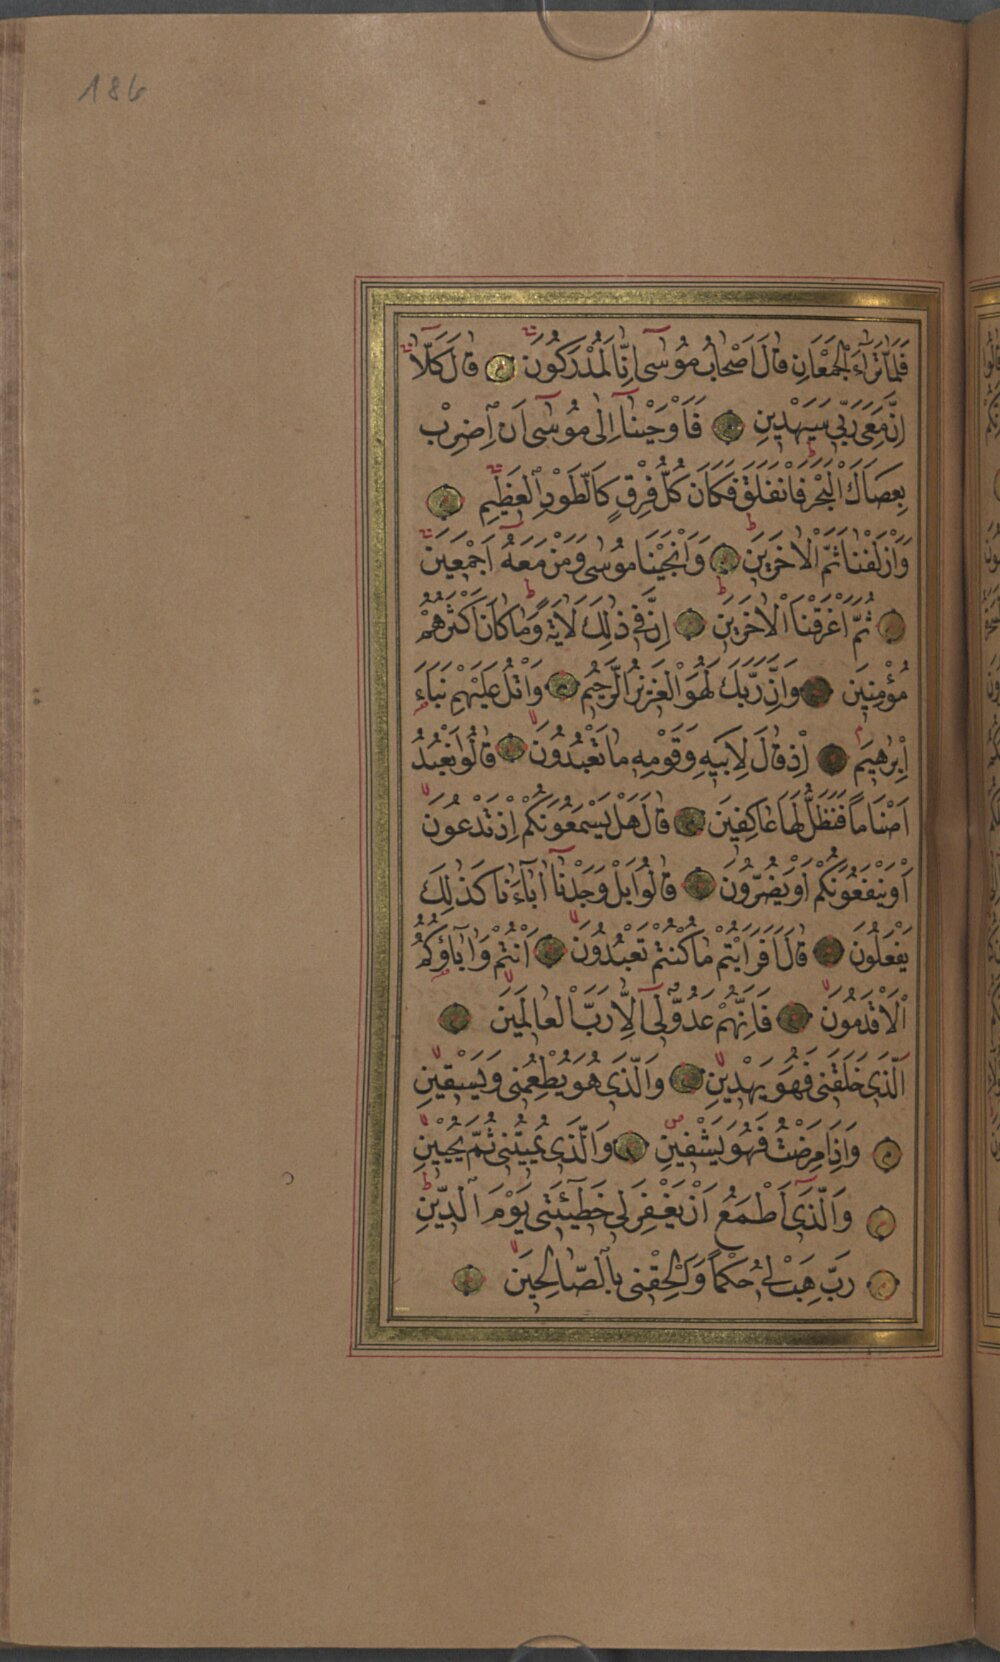 186
فَلَمَّا تَرَٓاءَ الْجَمْعَانِ قَالَ اَصْحَابُ مُوسٰٓى اِنَّا لَمُدْرَكُونَ قَالَ كَلَّا
اِنَّ مَعِىَ رَبّ۪ى سَيَهْد۪ينِ فَاَوْحَيْنَٓا اِلٰى مُوسٰٓى اَنِ اضْرِبْ
بِعَصَاكَ الْبَحْرَ فَانْفَلَقَ فَكَانَ كُلُّ فِرْقٍ كَالطَّوْدِ الْعَظ۪يمِ
وَاَزْلَفْنَا ثَمَّ الْاٰخَر۪ينَ وَاَنْجَيْنَا مُوسٰى وَمَنْ مَعَهُٓ اَجْمَع۪ينَ
ثُمَّ اَغْرَقْنَا الْاٰخَر۪ينَ اِنَّ ف۪ى ذٰلِكَ لَاٰيَةً وَمَا كَانَ اَكْثَرُهُمْ
مُؤْمِن۪ينَ وَاِنَّ رَبَّكَ لَهُوَ الْعَز۪يزُ الرَّح۪يمُ وَاتْلُ عَلَيْهِمْ نَبَاَ
اِبْرٰه۪يمَ اِذْ قَالَ لِاَب۪يهِ وَقَوْمِه۪ مَا تَعْبُدُونَ قَالُوا نَعْبُدُ
اَصْنَامًا فَنَظَلُّ لَهَا عَاكِف۪ينَ قَالَ هَلْ يَسْمَعُونَكُمْ اِذْ تَدْعُونَ
اَوْ يَنْفَعُونَكُمْ اَوْ يَضُرُّونَ قَالُوا بَلْ وَجَدْنَٓا اٰبَٓاءَنَا كَذٰلِكَ
يَفْعَلُونَ قَالَ اَفَرَاَيْتُمْ مَا كُنْتُمْ تَعْبُدُونَ اَنْتُمْ وَاٰبَٓاؤُكُمُ
الْاَقْدَمُونَ فَاِنَّهُمْ عَدُوٌّ ل۪ٓى اِلَّا رَبَّ الْعَالَم۪ينَ
اَلَّذ۪ى خَلَقَن۪ى فَهُوَ يَهْد۪ينِ وَالَّذ۪ى هُوَ يُطْعِمُن۪ى وَيَسْق۪ينِ
وَاِذَا مَرِضْتُ فَهُوَ يَشْف۪ينِ وَالَّذ۪ى يُم۪يتُن۪ى ثُمَّ يُحْي۪ينِ
وَالَّذ۪ٓى اَطْمَعُ اَنْ يَغْفِرَ ل۪ى خَط۪ٓيـَٔت۪ى يَوْمَ الدّ۪ينِ
رَبِّ هَبْ ل۪ى حُكْمًا وَاَلْحِقْن۪ى بِالصَّالِح۪ينَ